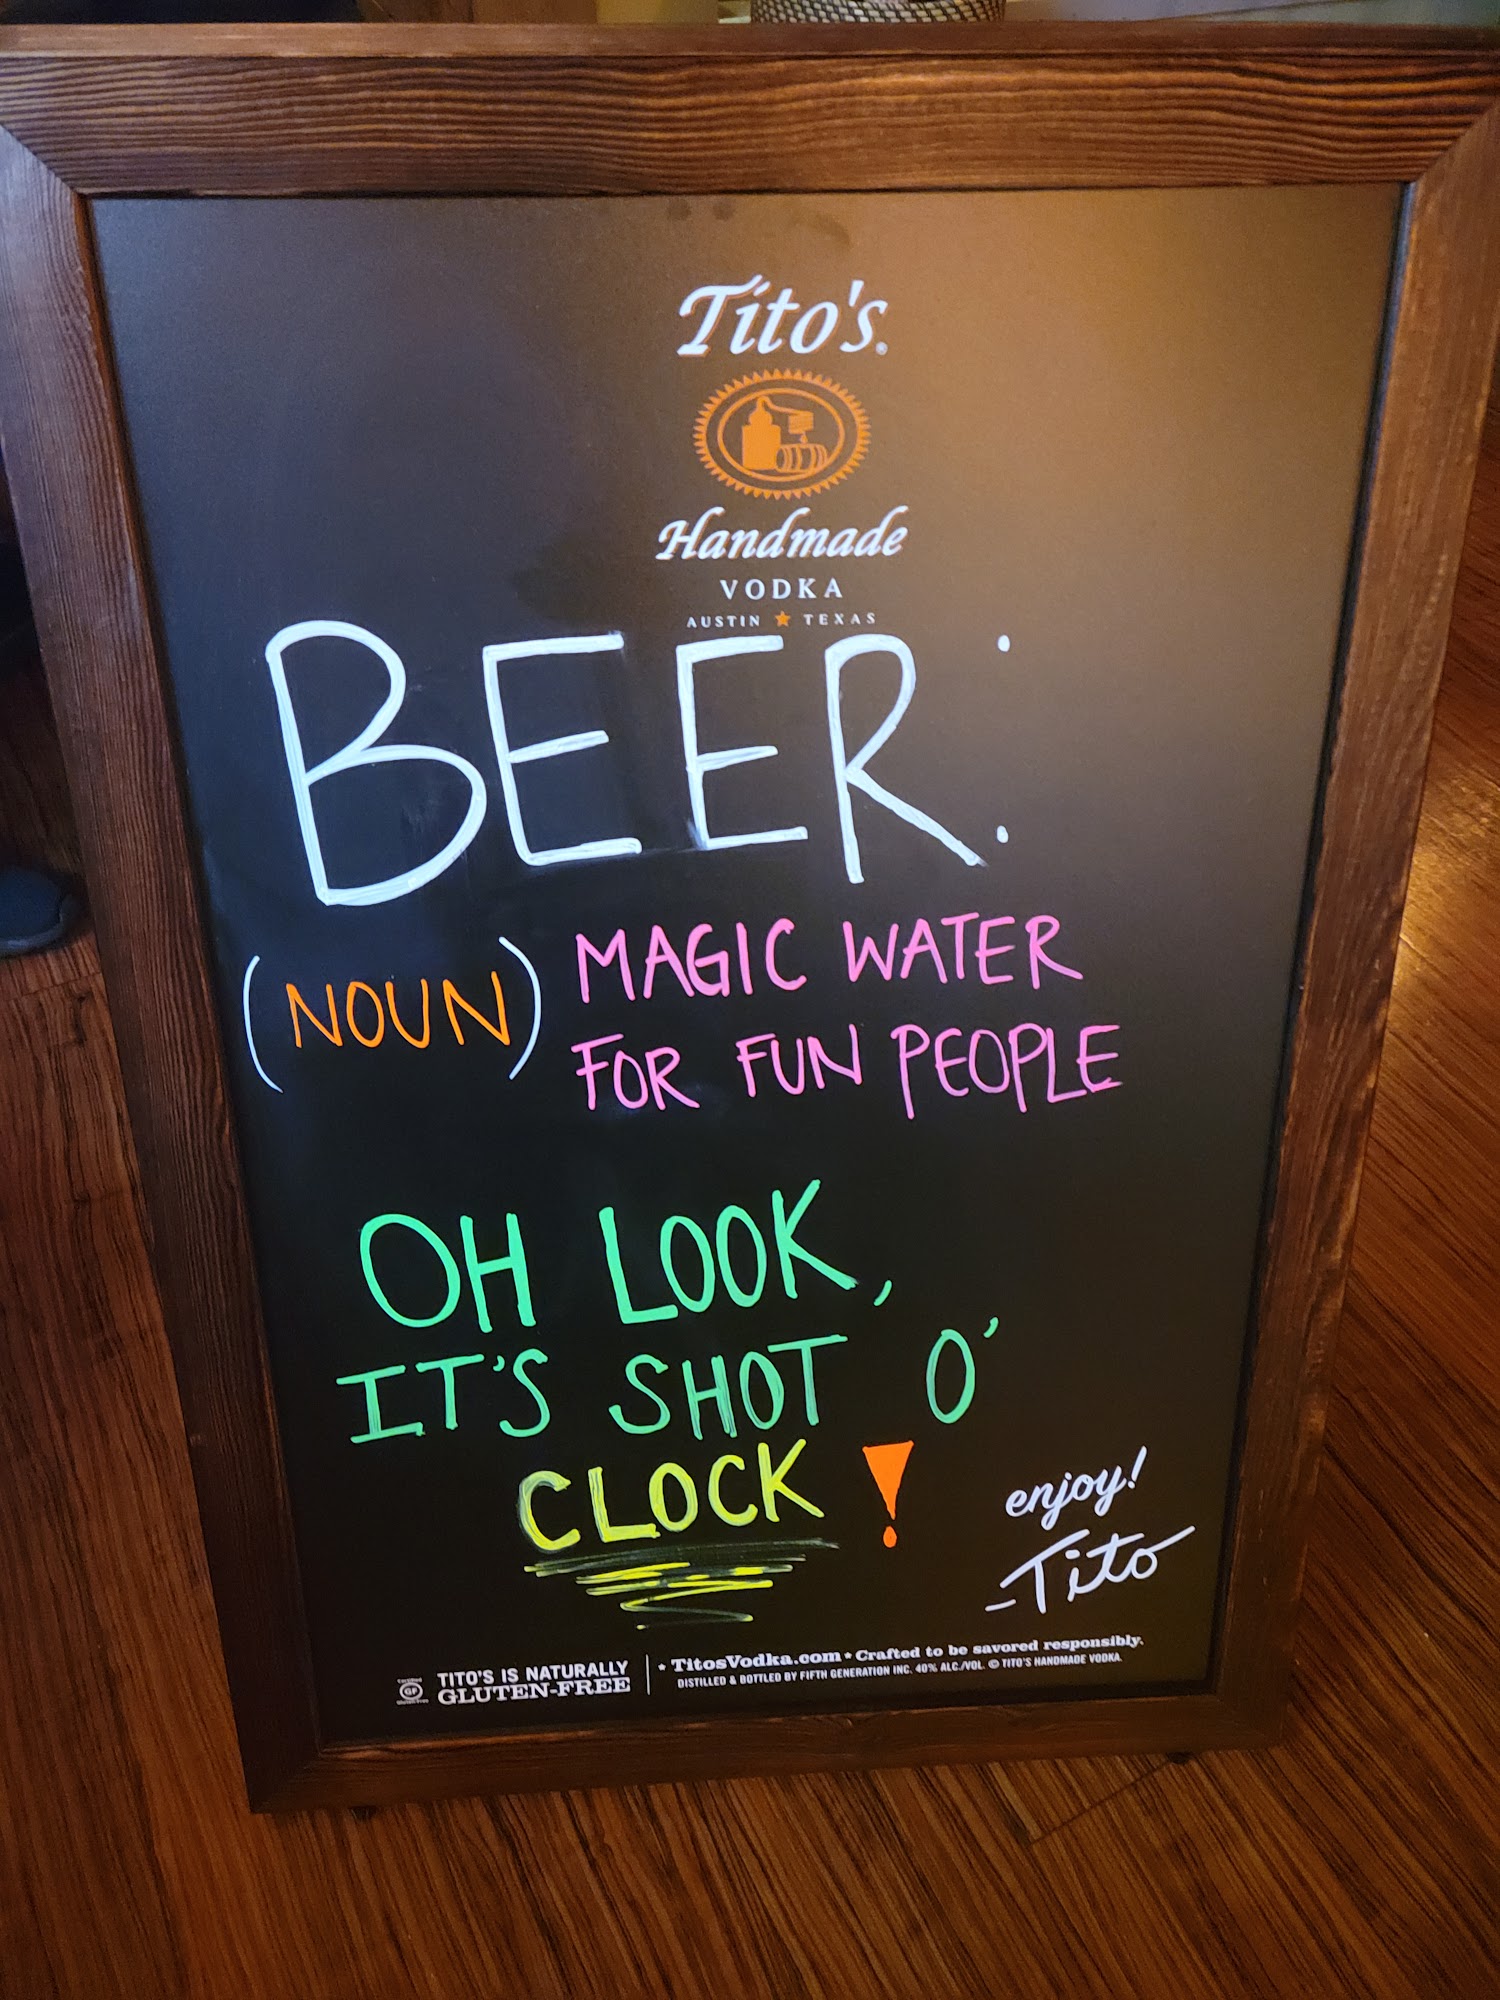 Tito's®
Handmade
VODKA
AUSTIN ★ TEXAS
BEER:
(NOUN) MAGIC WATER
FOR FUN PEOPLE
OH LOOK,
IT'S SHOT O'
CLOCK!
enjoy!
-Tito
GF
TITO'S IS NATURALLY
GLUTEN-FREE
★ TitosVodka.com ★ Crafted to be savored responsibly.
DISTILLED & BOTTLED BY FIFTH GENERATION INC. 40% ALC./VOL. © TITO'S HANDMADE VODKA.